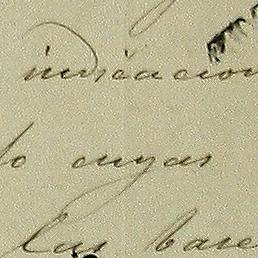 indicacion
do cuyas
las base